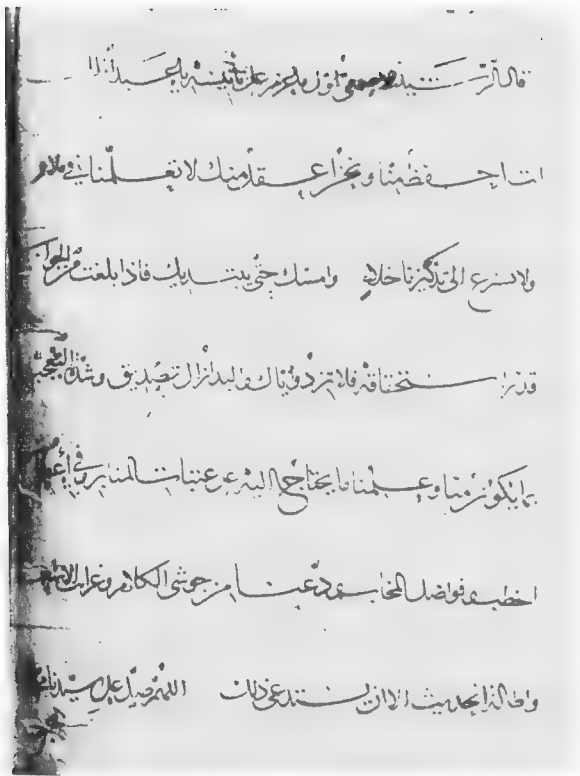 قال الرشيد للاصمعي اول ما عزم على تأنيسه يا عبد
انت احفظ منا ونحن اعقل منك لا تعلمنا في ملاء
ولا تسرع الى تذكيرنا خلاء وامسك حتى نبتديك فاذا بلغت من الجواب
قدر استحقاقه فلا تزد واياك والبدار الى تصديق وشدة التعجب
بما يكون منا وعلمنا ما يحتاج اليه عن عتبات المنابر وفي
الخطب وفواصل ودعنا من حوشي الكلام وغرائب
واطالة الحديث الا ان يستدعى ذلك اللهم صل على سيدنا